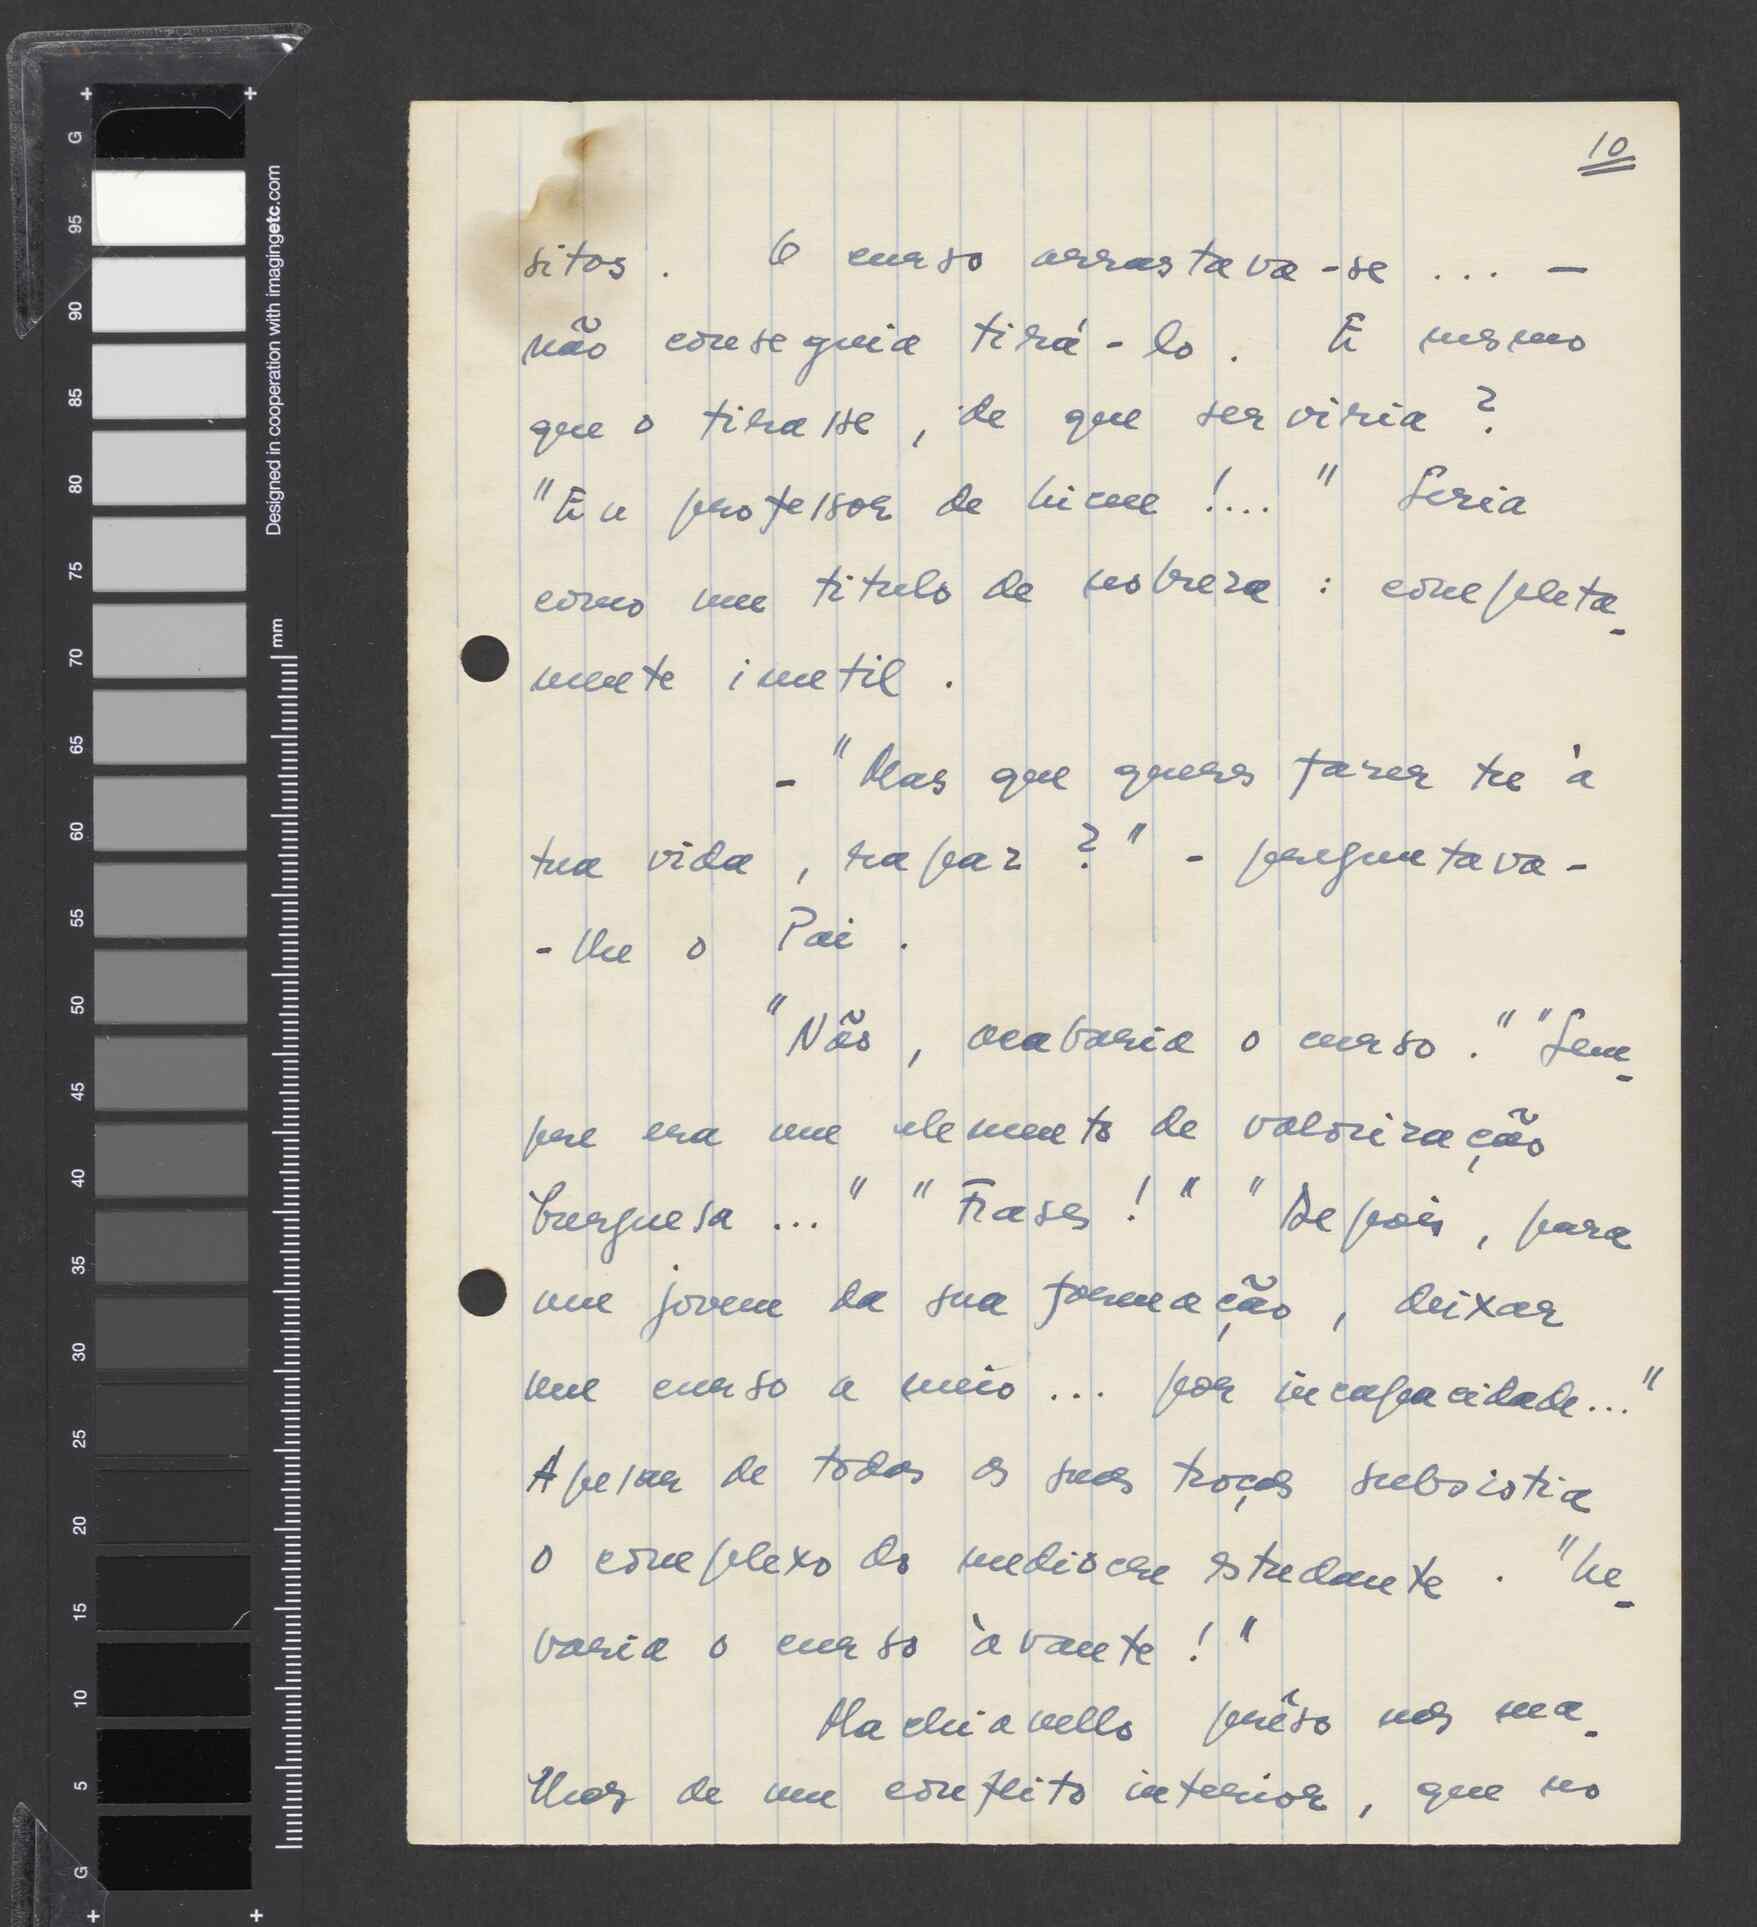 10
sitos. O curso arrastava-se ... —
não conseguia tirá-lo. E mesmo
que o tirasse, de que serviria?
"Eu professor de liceu!..." Seria
como um titulo de nobreza: completa-
mente inutil.
- "Mas que queres fazer tu à
tua vida, rapaz?" - perguntava-
-lhe o Pai.
"Não, acabaria o curso." "Sem-
pre era um elemento de valorização
burguesa ..." "Frases!" "Depois, para
um jovem da sua formação, deixar
um curso a meio ... por incapacidade..."
Apesar de todas as suas troças subsistia
o complexo do mediocre estudante. "Le-
varia o curso àvante!"
Machiavello prêso nas ma-
lhas de um conflito interior, que no
G 95 90 85 80 75 70 65 60 55 50 45 40 35 30 25 20 15 10 5 G
Designed in cooperation with imagingetc.com
mm